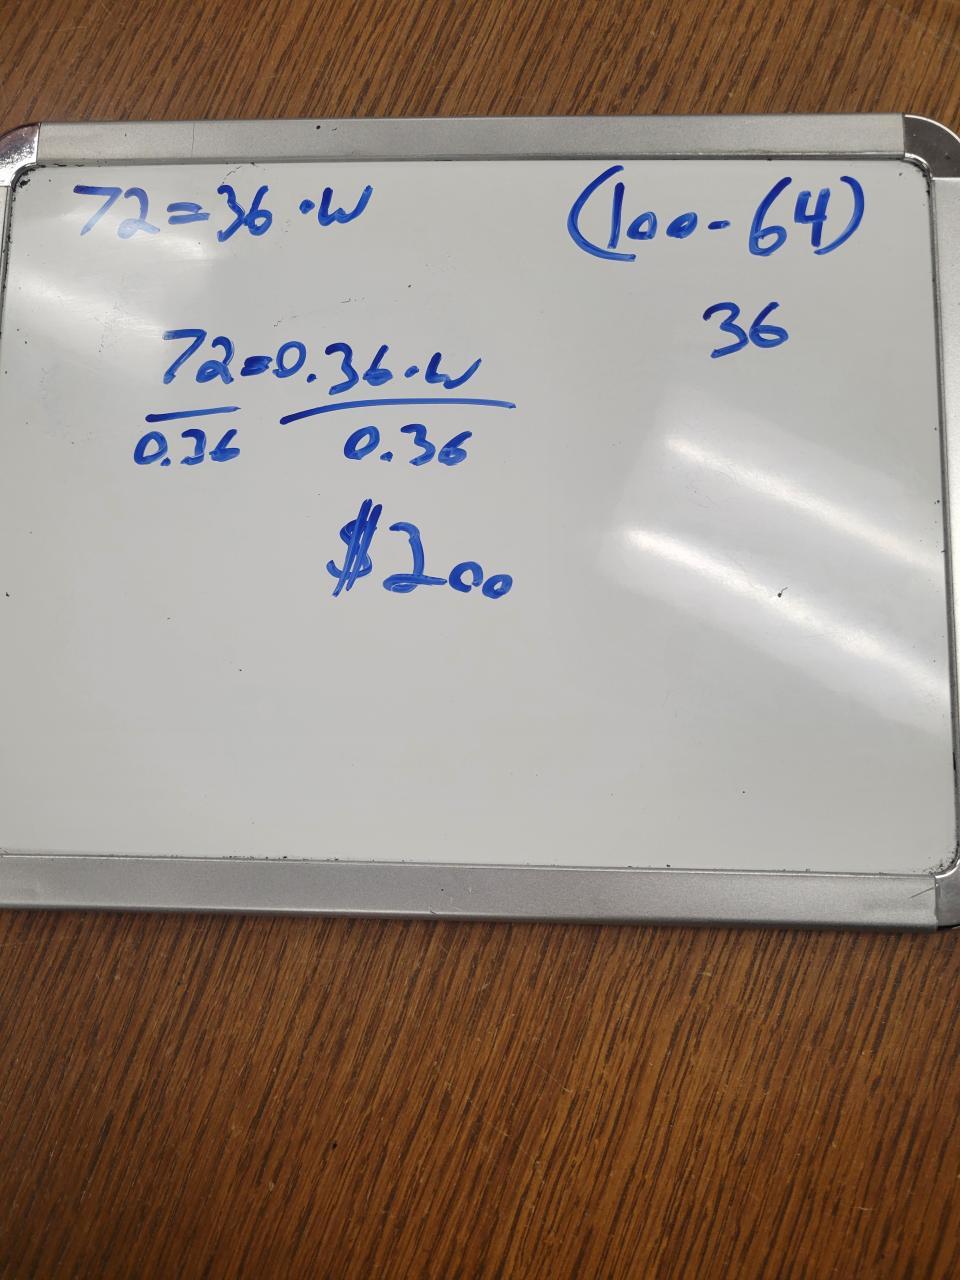 72=36·W
(100-64)
36
72=0.36·W
0.36 0.36
$200